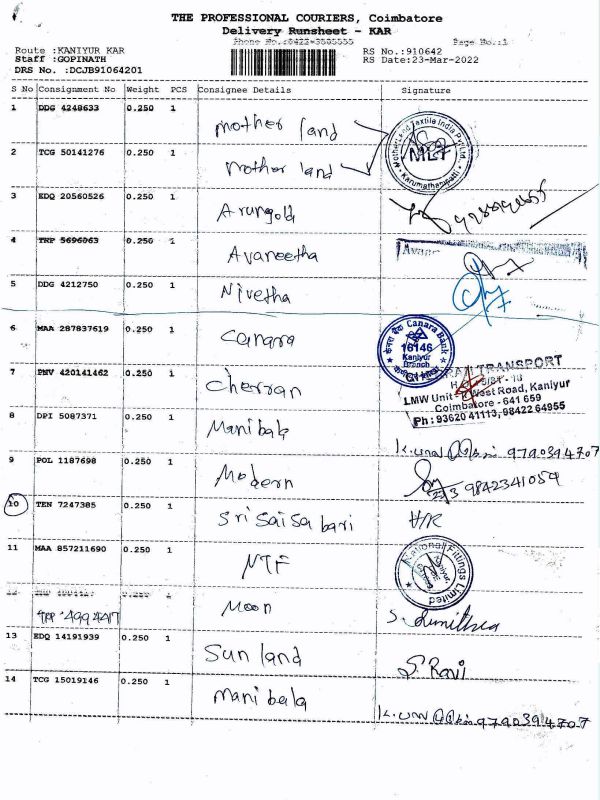 THE PROFESSIONAL COURIERS, Coimbatore
Delivery Runsheet - KAR
Phone No.:0422-3585555
Page No.:1
Route :KANIYUR KAR
RS No.:910642
Staff :GOPINATH
RS Date:23-Mar-2022
DRS No. :DCJB91064201
S No Consignment No Weight PCS Consignee Details Signature
1 DDG 4248633 0.250 1 mother land
MLT
2 TCG 50141276 0.250 1 mother land
3 EDQ 20560526 0.250 1 Arungold
4 TRP 5696063 0.250 1 Avaneetha
5 DDG 4212750 0.250 1 Nivetha
6 MAA 287837619 0.250 1 Canara
Canara Bank
16146
Kaniyur
Branch
7 PNV 420141462 0.250 1 Cherran
TRANSPORT
LMW Unit West Road, Kaniyur
Coimbatore - 641 659
Ph : 93620 41113, 98422 64955
8 DPI 5087371 0.250 1 Manibala
9790394707
9 POL 1187698 0.250 1 Modern
9842341059
10 TEN 7247385 0.250 1 Sri Sai Sabari
11 MAA 857211690 0.250 1 NTF
National Fittings Limited
12 0.250 1 Moon S. Sumithra
13 EDQ 14191939 0.250 1 Sun land S. Ravi
14 TCG 15019146 0.250 1 Manibala 9790394707